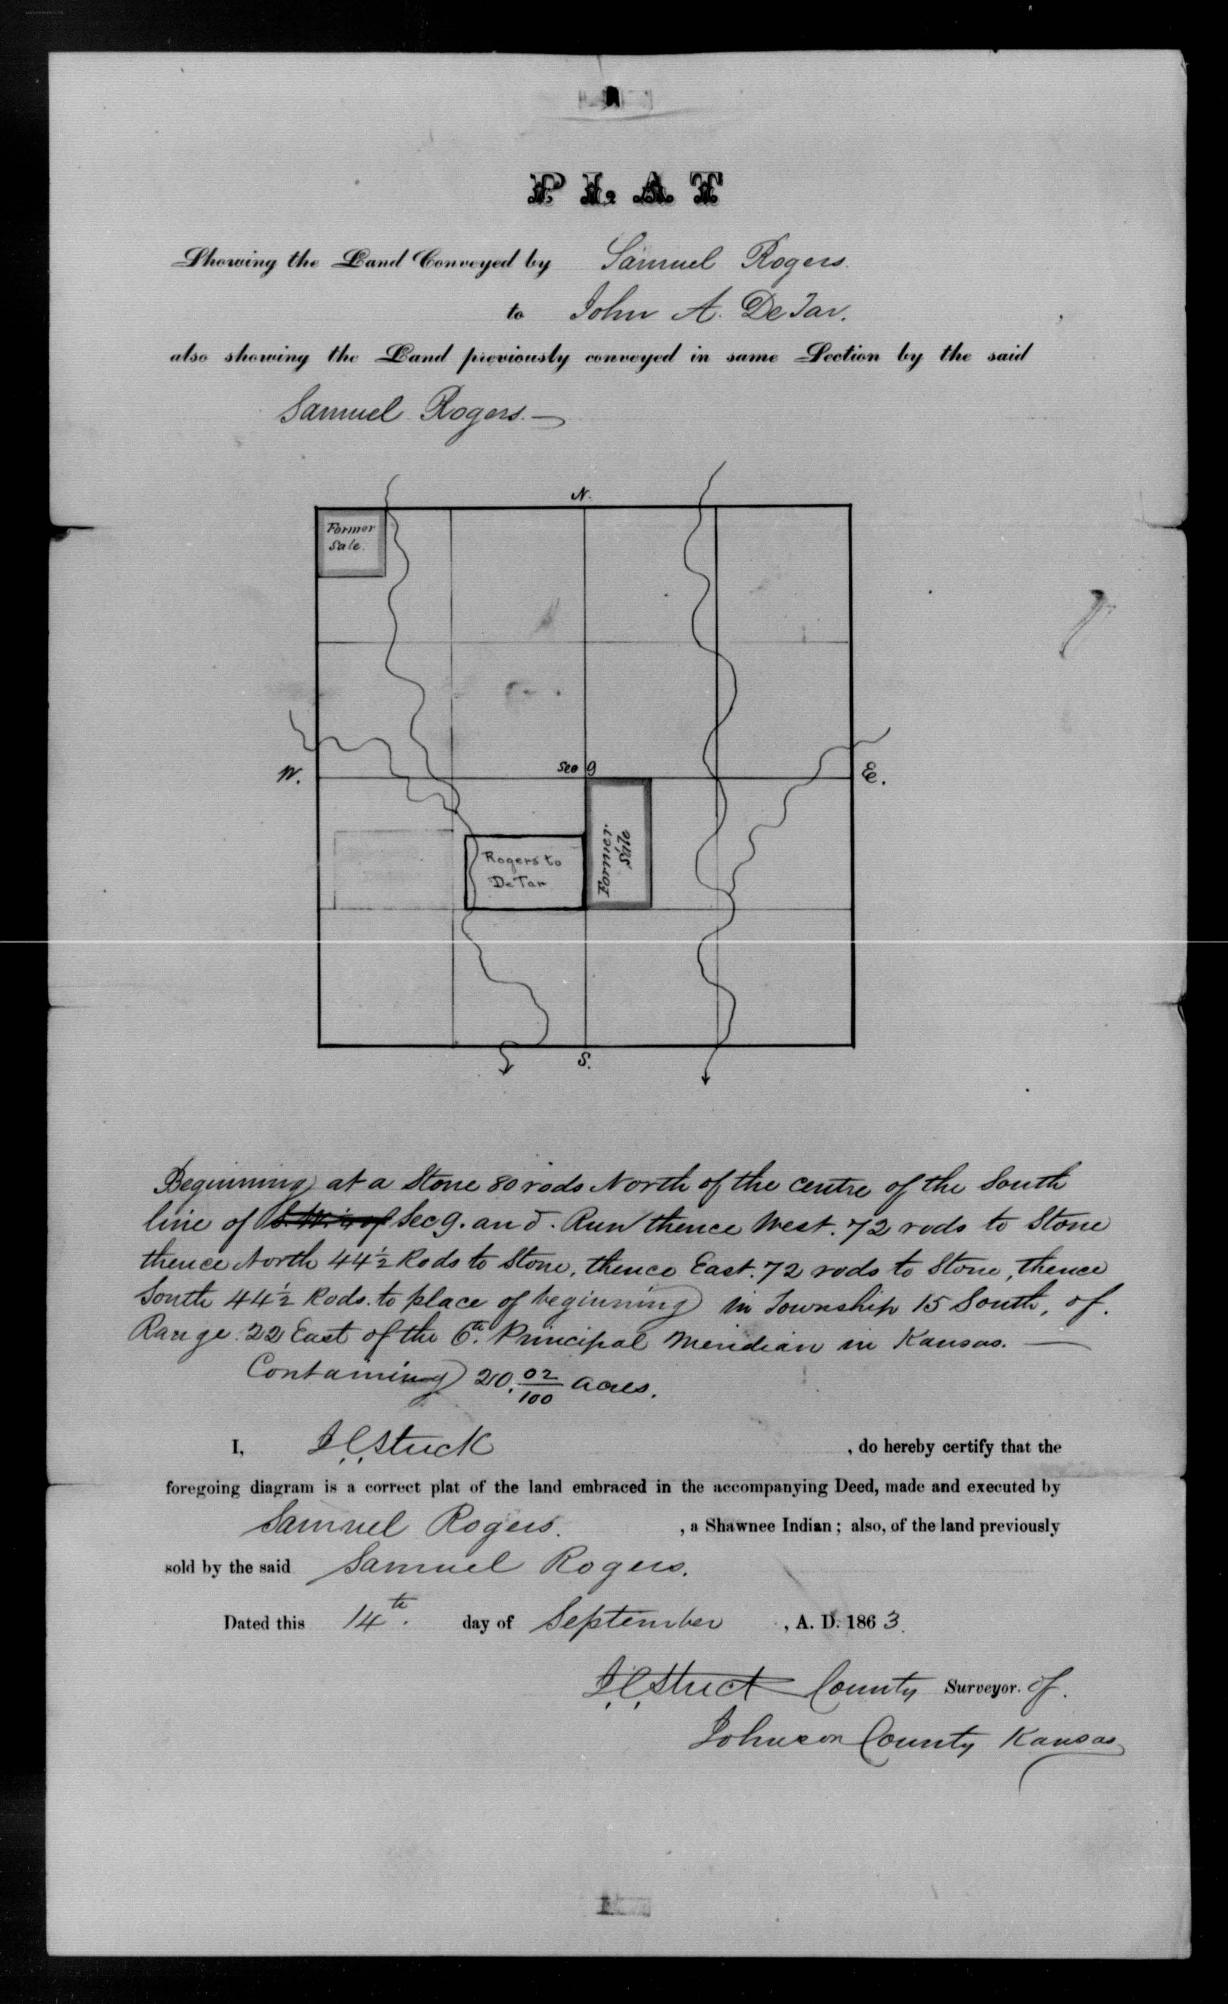 PLAT
Showing the Land Conveyed by Samuel Rogers.
to John A. DeTar.
also showing the Land previously conveyed in same Section by the said
Samuel Rogers.—
N.
Former
Sale.
W.
Sec 9
E.
Rogers to
DeTar
Former.
Sale
S.
Beginning at a Stone 80 rods North of the centre of the South
line of S.W. ¼ of Sec 9. and. Run thence West. 72 rods to Stone
thence North 44½ Rods to Stone, thence East. 72 rods to Stone, thence
South 44½ Rods. to place of beginning in Township 15 South, of.
Range. 22 East of the 6th. Principal Meridian in Kansas. —
Containing 20. 02/100 acres.
I, J.C. Stuck , do hereby certify that the
foregoing diagram is a correct plat of the land embraced in the accompanying Deed, made and executed by
Samuel Rogers. , a Shawnee Indian; also, of the land previously
sold by the said Samuel Rogers.
Dated this 14th. day of September , A. D. 1863.
J.C. Stuck County Surveyor. of.
Johnson County Kansas